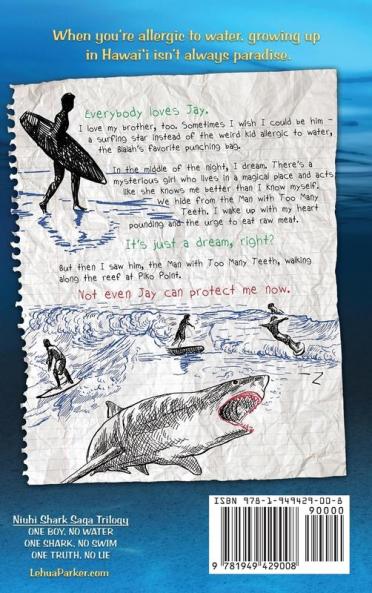 When you're allergic to water, growing up
in Hawai'i isn't always paradise.
Everybody loves Jay.
I love my brother, too. Sometimes I wish I could be him –
a surfing star instead of the weird kid allergic to water,
the Blalah's favorite punching bag.
In the middle of the night, I dream. There's a
mysterious girl who lives in a magical place and acts
like she knows me better than I know myself.
We hide from the Man with Too Many
Teeth. I wake up with my heart
pounding and the urge to eat raw meat.
It's just a dream, right?
But then I saw him, the Man with Too Many Teeth, walking
along the reef at Piko Point.
Not even Jay can protect me now.
Niuhi Shark Saga Trilogy
ONE BOY, NO WATER
ONE SHARK, NO SWIM
ONE TRUTH, NO LIE
LehuaParker.com
ISBN 978-1-949429-00-8
90000
9 781949 429008